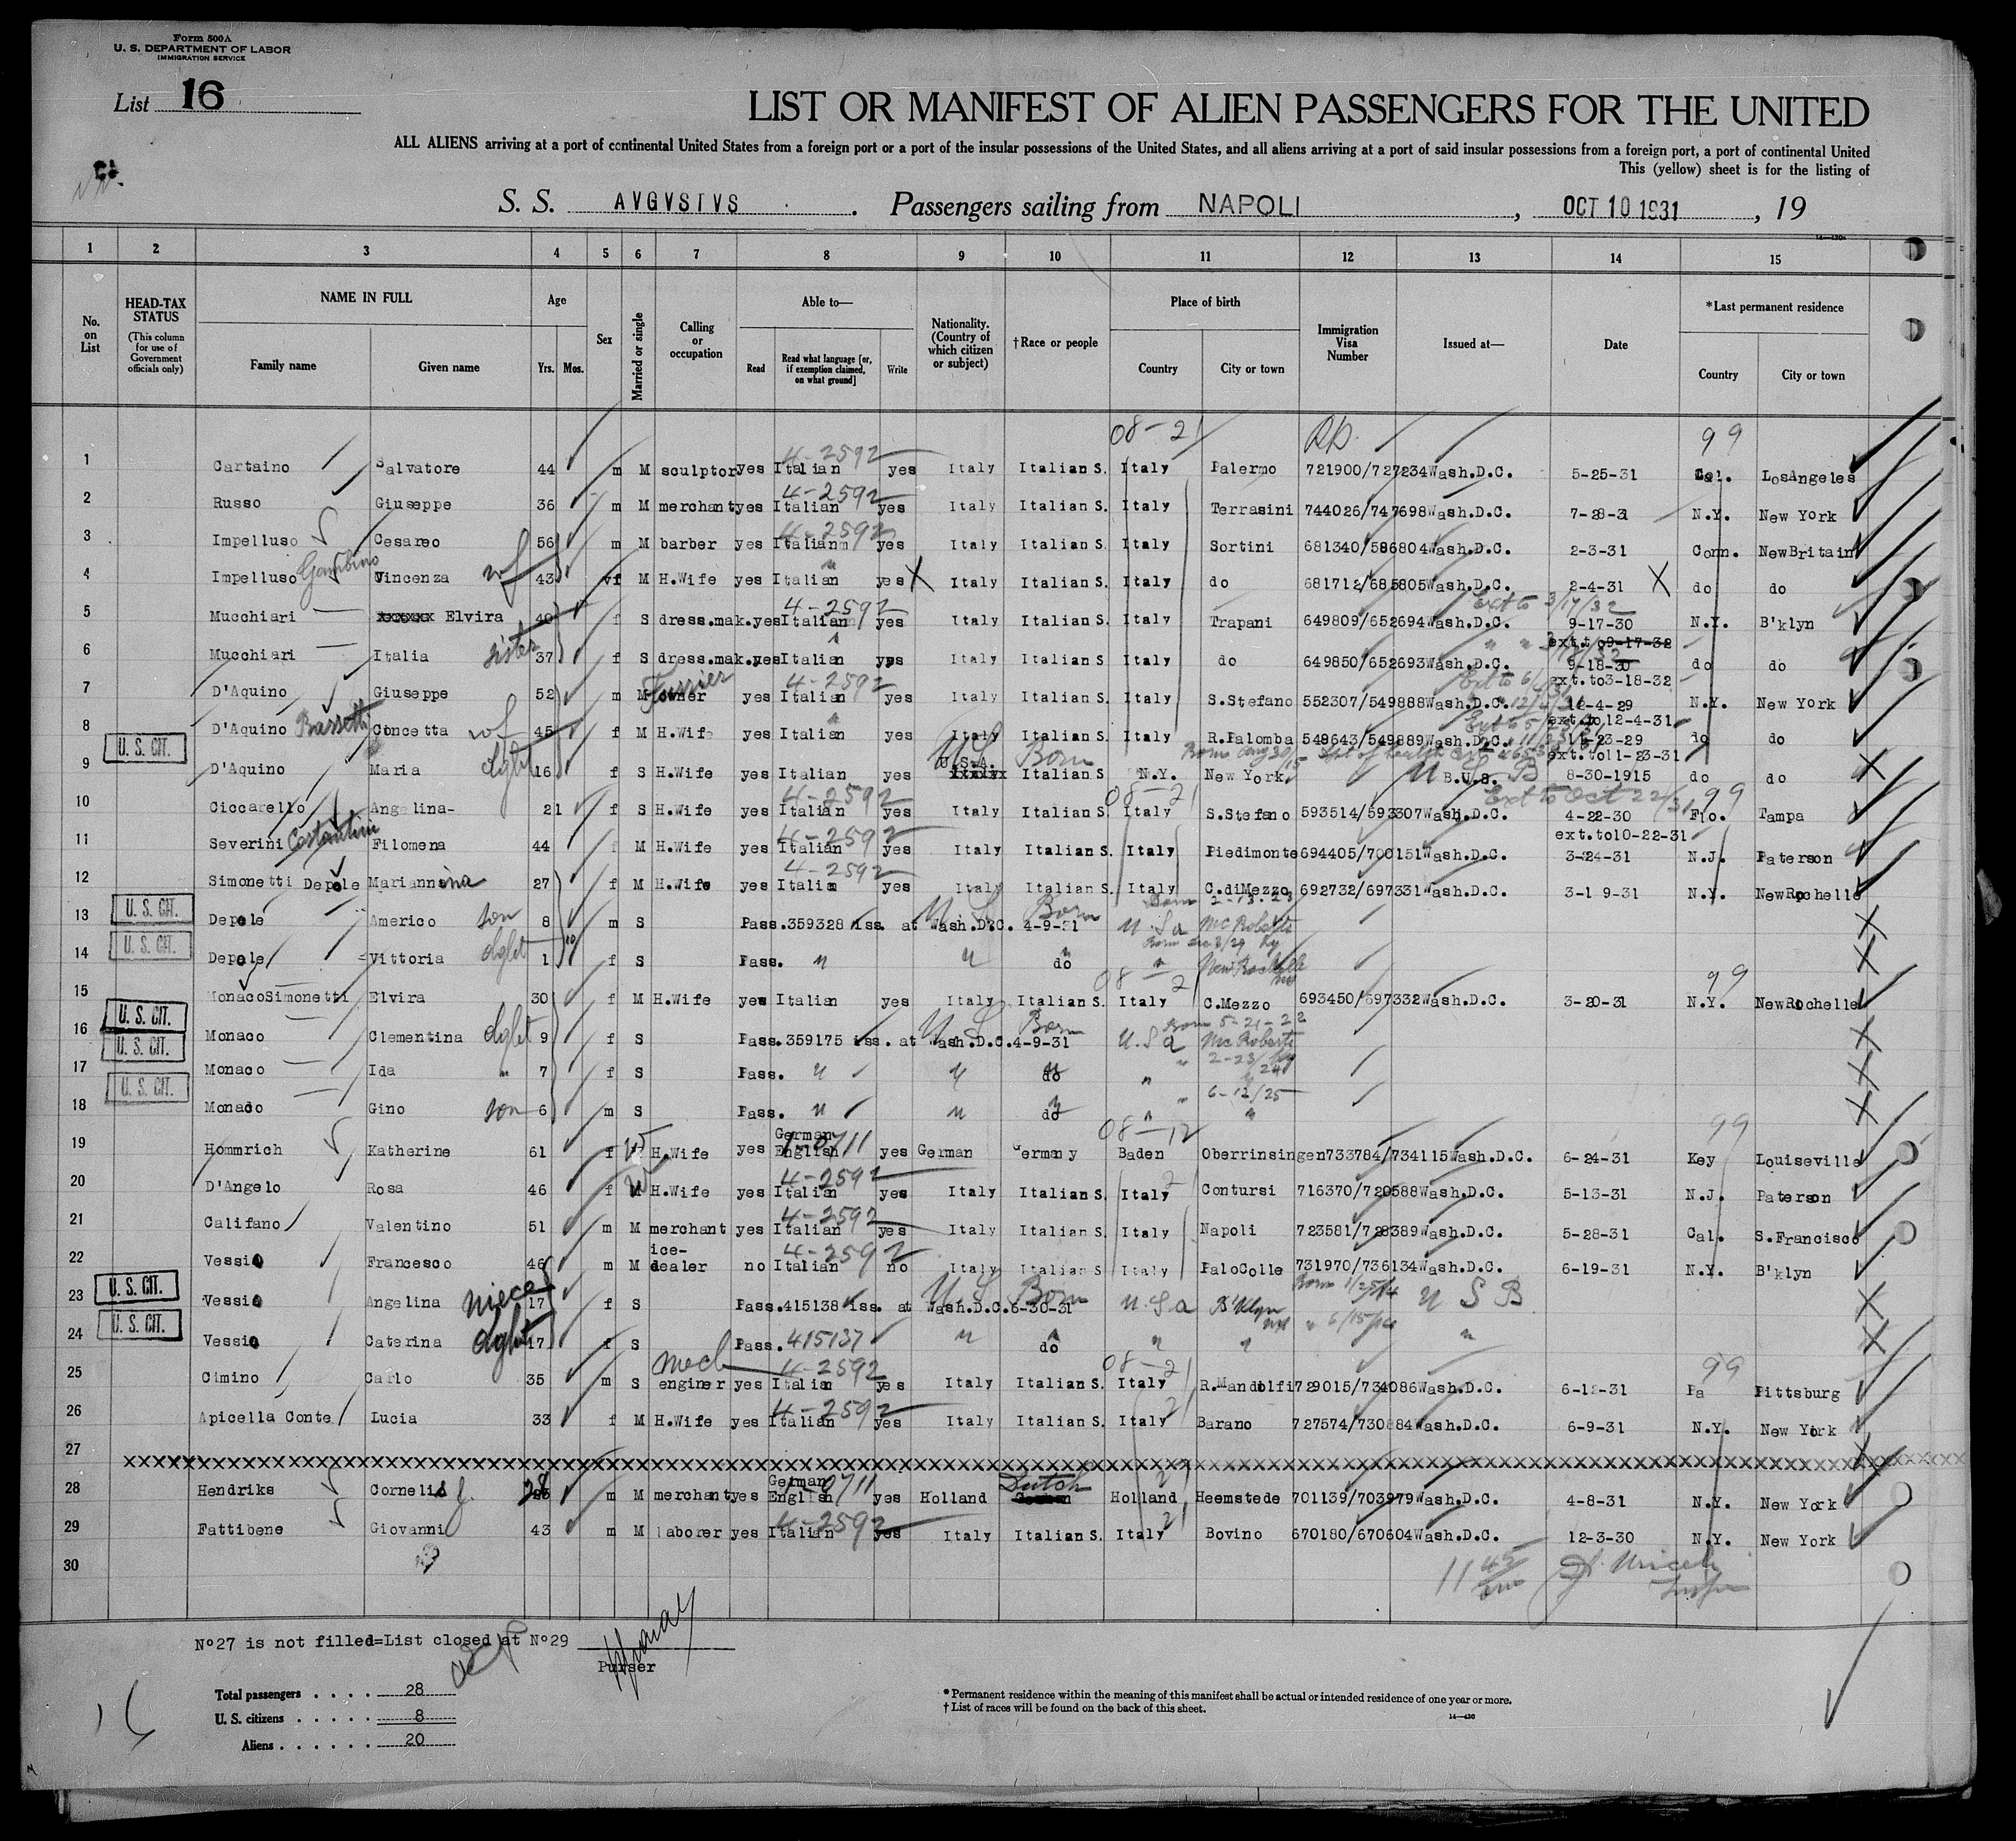 Form 500A
U. S. DEPARTMENT OF LABOR
IMMIGRATION SERVICE
List 16
LIST OR MANIFEST OF ALIEN PASSENGERS FOR THE UNITED
ALL ALIENS arriving at a port of continental United States from a foreign port or a port of the insular possessions of the United States, and all aliens arriving at a port of said insular possessions from a foreign port, a port of continental United
This (yellow) sheet is for the listing of
S. S. AVGVSTVS. Passengers sailing from NAPOLI, OCT 10 1931, 19
1 2 3 4 5 6 7 8 9 10 11 12 13 14 15
No. on List
HEAD-TAX STATUS
(This column for use of Government officials only)
NAME IN FULL
Family name
Given name
Age
Yrs. Mos.
Sex
Married or single
Calling or occupation
Able to—
Read
Read what language [or, if exemption claimed, on what ground]
Write
Nationality. (Country of which citizen or subject)
†Race or people
Place of birth
Country
City or town
Immigration Visa Number
Issued at—
Date
*Last permanent residence
Country
City or town
08-21 99
4-2592
1 Cartaino Salvatore 44 m M sculptor yes Italian yes Italy Italian S. Italy Palermo 721900/727234 Wash.D.C. 5-25-31 Cal. LosAngeles
4-2592
2 Russo Giuseppe 36 m M merchant yes Italian yes Italy Italian S. Italy Terrasini 744026/747698 Wash.D.C. 7-28-31 N.Y. New York
4-2592
3 Impelluso Cesareo 56 m M barber yes Italian yes Italy Italian S. Italy Sortini 681340/586804 Wash.D.C. 2-3-31 Conn. NewBritain
4 Impelluso Gambino Vincenza wf 43 f M H.Wife yes Italian yes X Italy Italian S. Italy do 681712/685805 Wash.D.C. 2-4-31 X do do
4-2592 Ext to 3/17/32
5 Mucchiari xxxxxx Elvira 40 f S dress.mak. yes Italian yes Italy Italian S. Italy Trapani 649809/652694 Wash.D.C. 9-17-30 N.Y. B'klyn
ext.to9-17-32
6 Mucchiari Italia sister 37 f S dress.mak. yes Italian yes Italy Italian S. Italy do 649850/652693 Wash.D.C. 9-18-30 do do
4-2592 ext.to3-18-32
7 D'Aquino Giuseppe 52 m M owner Furrier yes Italian yes Italy Italian S. Italy S.Stefano 552307/549888 Wash.D.C. 12-4-29 N.Y. New York
ext.to12-4-31
8 D'Aquino Bassetti Concetta wf 45 f M H.Wife yes Italian yes Italy Italian S. Italy R.Palomba 548643/549889 Wash.D.C. 11-23-29 do do
U. S. CIT. US Born ext.to11-23-31
U.S.A.
9 D'Aquino Maria dght 16 f S H.Wife yes Italian yes xxxxx Italian S N.Y. New York. U B.U.S. B 8-30-1915 do do
4-2592 08-21 Ext to Oct 22/31 99
10 Ciccarello Angelina- 21 f S H.Wife yes Italian yes Italy Italian S. Italy S.Stefano 593514/593307 Wash.D.C. 4-22-30 Flo. Tampa
4-2592 ext.to10-22-31
11 Severini Costantini Filomena 44 f M H.Wife yes Italian yes Italy Italian S. Italy Piedimonte 694405/700151 Wash.D.C. 3-24-31 N.J. Paterson
4-2592
12 Simonetti Depole Mariannina 27 f M H.Wife yes Italian yes Italy Italian S. Italy C.diMezzo 692732/697331 Wash.D.C. 3-19-31 N.Y. NewRochelle
U. S. CIT. US Born
13 Depole Americo son 8 m S Pass.359328 iss. at Wash.D.C. 4-9-31 U.S.a McRoberts
U. S. CIT.
14 Depole Vittoria dght 1 10 f S Pass. " " do " New Rochelle
08-21 99
15 Monaco Simonetti Elvira 30 f M H.Wife yes Italian yes Italy Italian S. Italy C.Mezzo 693450/697332 Wash.D.C. 3-20-31 N.Y. NewRochelle
U. S. CIT. US Born Born 5-21-22
16 Monaco Clementina dght 9 f S Pass.359175 iss. at Wash.D.C. 4-9-31 U.S a McRoberts
U. S. CIT.
17 Monaco Ida " 7 f S Pass. " " do "
U. S. CIT. 6-12/25
18 Monaco Gino son 6 m S Pass. " " do " "
08-12 99
German 1-0711
19 Hommrich Katherine 61 f W H.Wife yes English yes German Germany Baden Oberrinsingen 733784/734115 Wash.D.C. 6-24-31 Key Louiseville
4-2592
20 D'Angelo Rosa 46 f W H.Wife yes Italian yes Italy Italian S. Italy Contursi 716370/720588 Wash.D.C. 5-13-31 N.J. Paterson
4-2592
21 Califano Valentino 51 m M merchant yes Italian yes Italy Italian S. Italy Napoli 723581/728389 Wash.D.C. 5-28-31 Cal. S.Francisco
4-2592
22 Vessio Francesco 46 m M ice-dealer no Italian no Italy Italian S Italy PaloColle 731970/736134 Wash.D.C. 6-19-31 N.Y. B'klyn
U. S. CIT. US Born
23 Vessio Angelina niece 17 f S Pass.415138 iss. at Wash.D.C. 6-30-31 U.S a B'klyn U S B
U. S. CIT.
24 Vessio Caterina dght 17 f S Pass. 415137 " do " " "
4-2592 08-21 99
25 Cimino Carlo 35 m S mech enginer yes Italian yes Italy Italian S. Italy R.Mandolfi 729015/734086 Wash.D.C. 6-12-31 Pa Pittsburg
4-2592
26 Apicella Conte Lucia 33 f M H.Wife yes Italian yes Italy Italian S. Italy Barano 727574/730884 Wash.D.C. 6-9-31 N.Y. New York
27
German 1-0711 Dutch
28 Hendriks Cornelis J. 28 m M merchant yes English yes Holland Holland Heemstede 701139/703979 Wash.D.C. 4-8-31 N.Y. New York
4-2592
29 Fattibene Giovanni 43 m M laborer yes Italian yes Italy Italian S. Italy Bovino 670180/670604 Wash.D.C. 12-3-30 N.Y. New York
30 11 45 am
Nº27 is not filled=List closed at Nº29
Purser
Total passengers .... 28
U. S. citizens ..... 8
Aliens ...... 20
* Permanent residence within the meaning of this manifest shall be actual or intended residence of one year or more.
† List of races will be found on the back of this sheet.
14—430